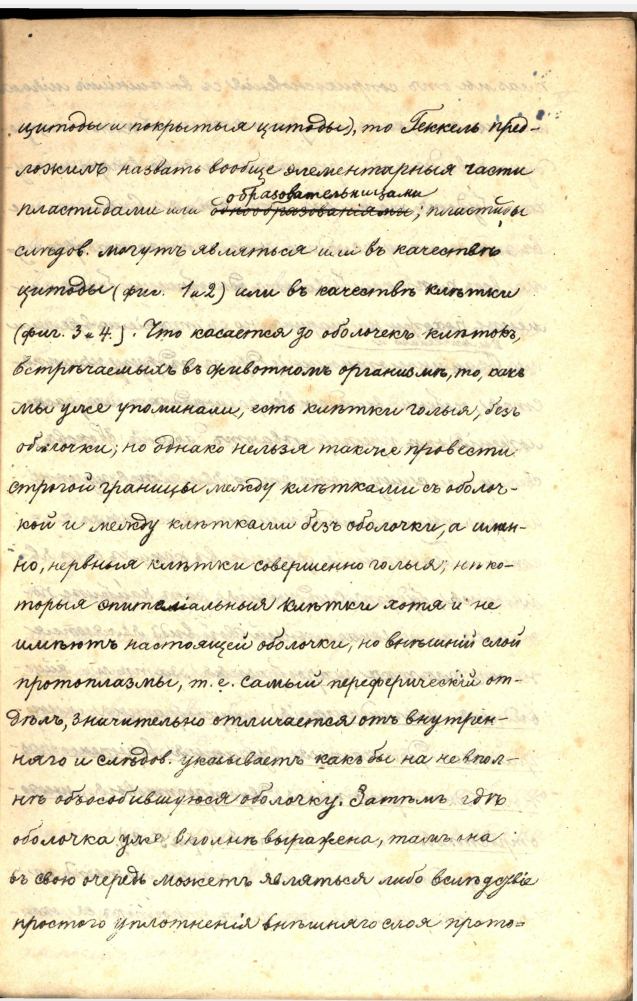 цитоды и покрытыя цитоды), то Геккель пред-
ложилъ назвать вообще элементарныя части
образовательницами
пластидами или однообразованіями; пластиды
слѣдов. могутъ являться или въ качествѣ
цитоды (фиг. 1 и 2) или въ качествѣ клѣтки
(фиг. 3 и 4.). Что касается до оболочекъ клѣтокъ,
встрѣчаемыхъ въ животномъ организмѣ, то, какъ
мы уже упоминали, есть клѣтки голыя, безъ
оболочки; но однако нельзя также провести
строгой границы между клѣтками съ оболоч-
кой и между клѣтками безъ оболочки, а имен-
но, нервныя клѣтки совершенно голыя; нѣко-
торыя эпителіальныя клѣтки хотя и не
имѣютъ настоящей оболочки, но внѣшній слой
протоплазмы, т. е. самый переферическій от-
дѣлъ, значительно отличается отъ внутрен-
няго и слѣдов. указываетъ какъ бы на не впол-
нѣ обособившуюся оболочку. Затѣмъ гдѣ
оболочка уже вполнѣ выражена, тамъ она
въ свою очередь можетъ являться либо вслѣдствіе
простого уплотненія внѣшняго слоя прото=